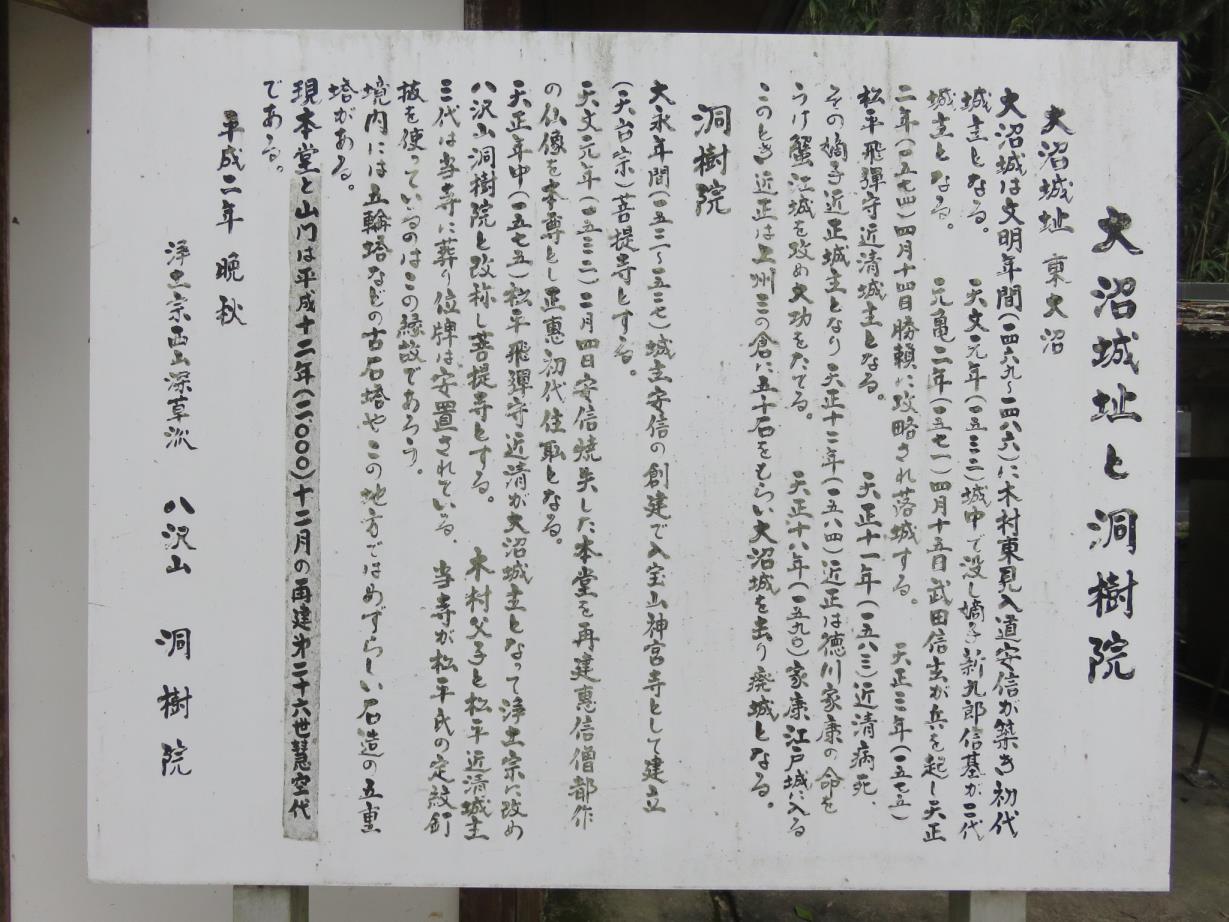 大沼城址と洞樹院
大沼城址 東大沼
大沼城は文明年間(一四六九〜一四八六)に木村東見入道安信が築き初代
城主となる。 天文元年(一五三二)城中で没し嫡子新九郎信基が二代
城主となる。 元亀二年(一五七一)四月十五日武田信玄が兵を起し天正
二年(一五七四)四月十四日勝頼に攻略され落城する。 天正三年(一五七五)
松平飛弾守近清城主となる。 天正十一年(一五八三)近清病死、
その嫡子近正城主となり天正十二年(一五八四)近正は徳川家康の命を
うけ蟹江城を攻め大功をたてる。 天正十八年(一五九〇)家康江戸城に入る
このとき近正は上州三の倉に五千石をもらい大沼城を去り廃城となる。
洞樹院
大永年間(一五二一〜一五二七)城主安信の創建で入宝山神宮寺として建立
(天台宗)菩提寺とする。
天文元年(一五三二)二月四日安信焼失した本堂を再建惠信僧都作
の仏像を本尊とし正惠初代住職となる。
天正年中(一五七五)松平飛弾守近清が大沼城主となって浄土宗に改め
八沢山洞樹院と改称し菩提寺とする。 木村父子と松平近清城主
三代は当寺に葬り位牌は安置されている、 当寺が松平氏の定紋釘
抜を使っているのはこの縁故であろう。
境内には五輪塔などの古石塔やこの地方ではめずらしい石造の五重
塔がある。
現本堂と山門は平成十二年(二〇〇〇)十二月の再建第二十六世慧空代
である。
平成二年 晩秋
浄土宗西山深草派 八沢山 洞樹院